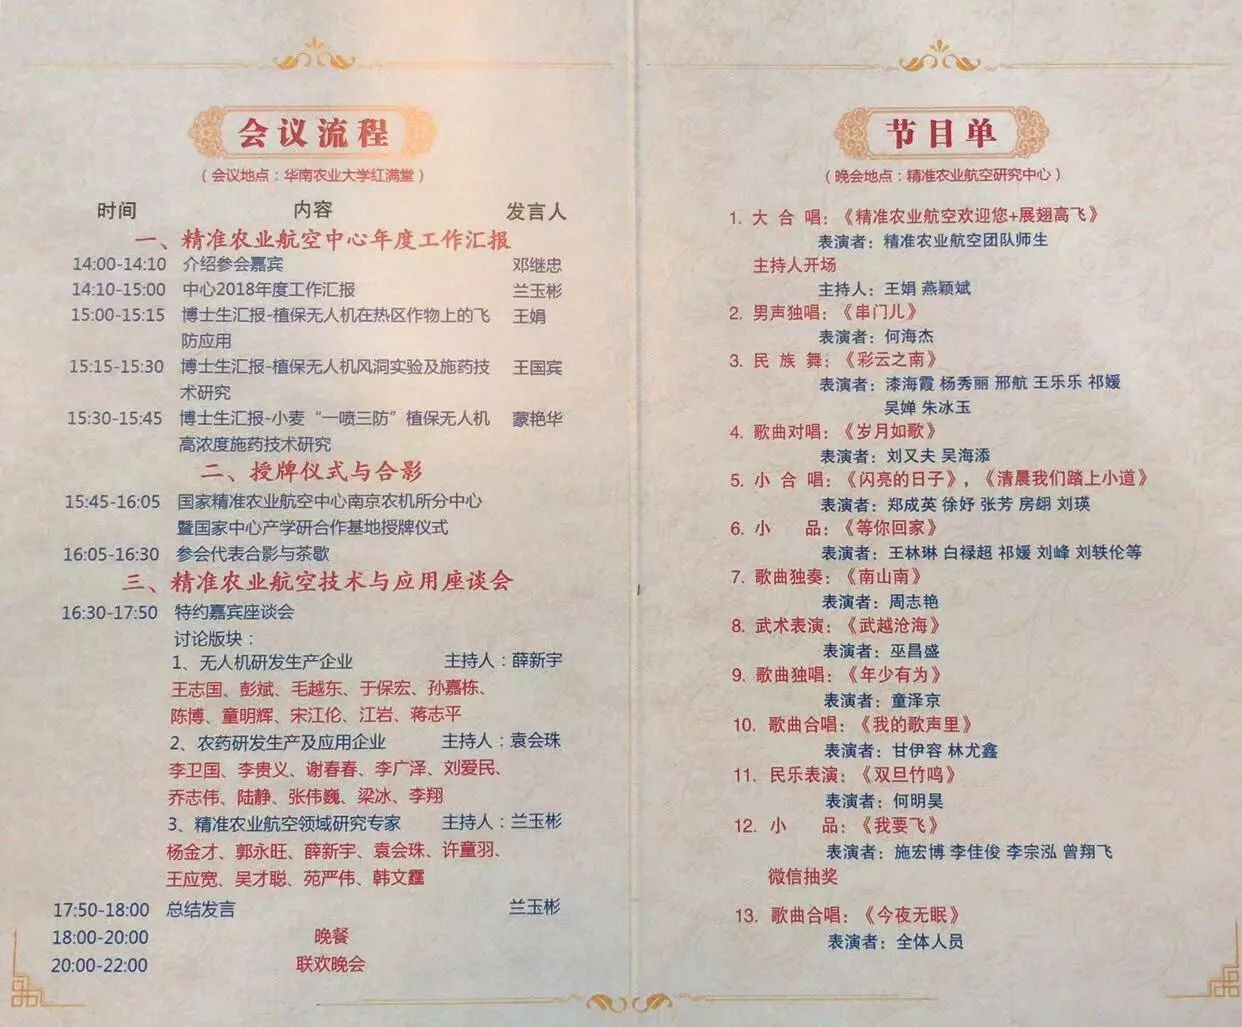 会议流程
（会议地点：华南农业大学红满堂）
时间 内容 发言人
一、精准农业航空中心年度工作汇报
14:00-14:10 介绍参会嘉宾 邓继忠
14:10-15:00 中心2018年度工作汇报 兰玉彬
15:00-15:15 博士生汇报-植保无人机在热区作物上的飞 王娟
防应用
15:15-15:30 博士生汇报-植保无人机风洞实验及施药技 王国宾
术研究
15:30-15:45 博士生汇报-小麦“一喷三防”植保无人机 蒙艳华
高浓度施药技术研究
二、授牌仪式与合影
15:45-16:05 国家精准农业航空中心南京农机所分中心
暨国家中心产学研合作基地授牌仪式
16:05-16:30 参会代表合影与茶歇
三、精准农业航空技术与应用座谈会
16:30-17:50 特约嘉宾座谈会
讨论版块：
1、无人机研发生产企业 主持人：薛新宇
王志国、彭斌、毛越东、于保宏、孙嘉栋、
陈博、童明辉、宋江伦、江岩、蒋志平
2、农药研发生产及应用企业 主持人：袁会珠
李卫国、李贵义、谢春春、李广泽、刘爱民、
乔志伟、陆静、张伟巍、梁冰、李翔
3、精准农业航空领域研究专家 主持人：兰玉彬
杨金才、郭永旺、薛新宇、袁会珠、许童羽、
王应宽、吴才聪、苑严伟、韩文霆
17:50-18:00 总结发言 兰玉彬
18:00-20:00 晚餐
20:00-22:00 联欢晚会
节目单
（晚会地点：精准农业航空研究中心）
1. 大合唱：《精准农业航空欢迎您+展翅高飞》
表演者：精准农业航空团队师生
主持人开场
主持人：王娟 燕颖斌
2. 男声独唱：《串门儿》
表演者：何海杰
3. 民族舞：《彩云之南》
表演者：漆海霞 杨秀丽 邢航 王乐乐 祁媛
吴婵 朱冰玉
4. 歌曲对唱：《岁月如歌》
表演者：刘又夫 吴海添
5. 小合唱：《闪亮的日子》，《清晨我们踏上小道》
表演者：郑成英 徐妤 张芳 房翃 刘瑛
6. 小品：《等你回家》
表演者：王林琳 白禄超 祁媛 刘峰 刘轶伦等
7. 歌曲独奏：《南山南》
表演者：周志艳
8. 武术表演：《武越沧海》
表演者：巫昌盛
9. 歌曲独唱：《年少有为》
表演者：童泽京
10. 歌曲合唱：《我的歌声里》
表演者：甘伊容 林尤鑫
11. 民乐表演：《双旦竹鸣》
表演者：何明昊
12. 小品：《我要飞》
表演者：施宏博 李佳俊 李宗泓 曾翔飞
微信抽奖
13. 歌曲合唱：《今夜无眠》
表演者：全体人员